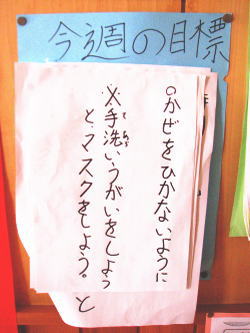 今週の目標
○かぜをひかないように
※手洗いうがいをしよう
と、マスクをしよう。と